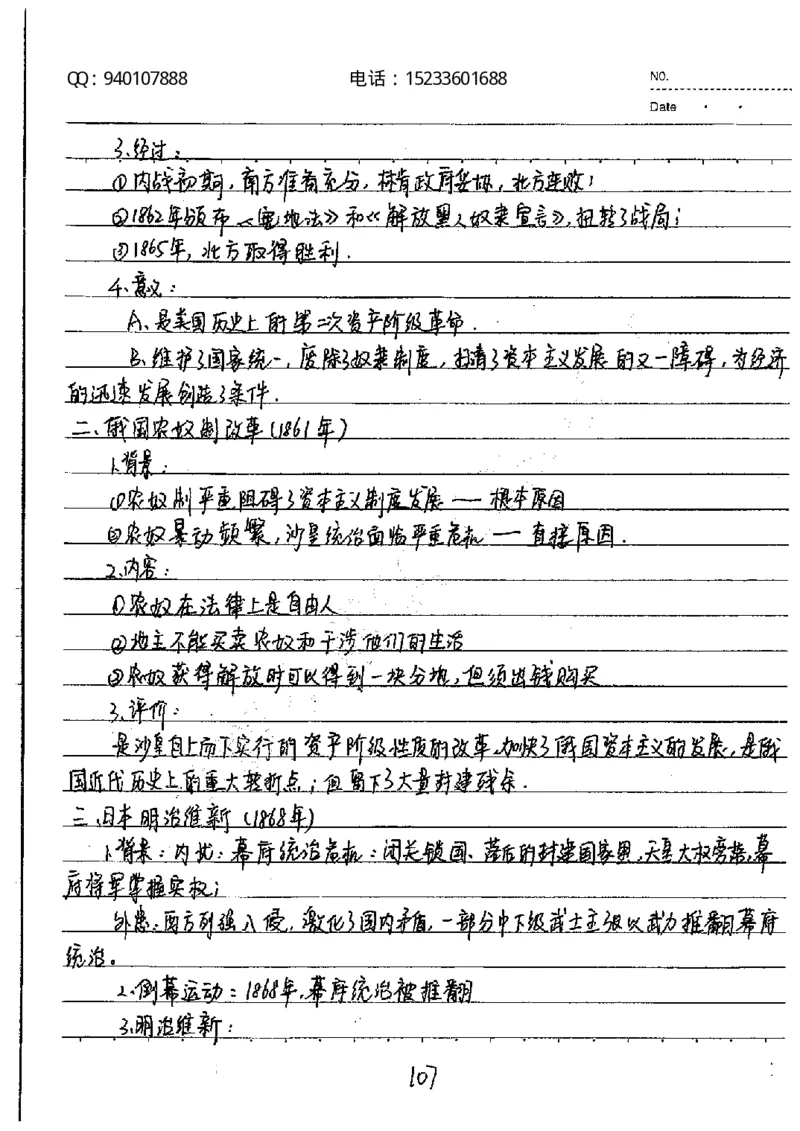 QQ：940107888 电话：15233601688 NO.
Date
3、经过：
①内战初期，南方准备充分，林肯政府妥协，北方连败；
②1862年颁布《宅地法》和《解放黑人奴隶宣言》，扭转了战局；
③1865年，北方取得胜利．
4、意义：
A、是美国历史上的第二次资产阶级革命．
B、维护了国家统一，废除了奴隶制度，扫清了资本主义发展的又一障碍，为经济
的迅速发展创造了条件．
二、俄国农奴制改革（1861年）
1、背景：
①农奴制严重阻碍了资本主义制度发展——根本原因
②农奴暴动频繁，沙皇统治面临严重危机——直接原因．
2、内容：
①农奴在法律上是自由人
②地主不能买卖农奴和干涉他们的生活
③农奴获得解放时可以得到一块份地，但须出钱购买
3、评价：
是沙皇自上而下实行的资产阶级性质的改革，加快了俄国资本主义的发展，是俄
国近代历史上的重大转折点；但留下了大量封建残余．
三、日本明治维新（1868年）
1、背景：内忧：幕府统治危机：闭关锁国、落后的封建国家，天皇大权旁落，幕
府将军掌握实权；
外患：西方列强入侵，激化了国内矛盾，一部分中下级武士主张以武力推翻幕府
统治。
2、倒幕运动：1868年，幕府统治被推翻
3、明治维新：
107